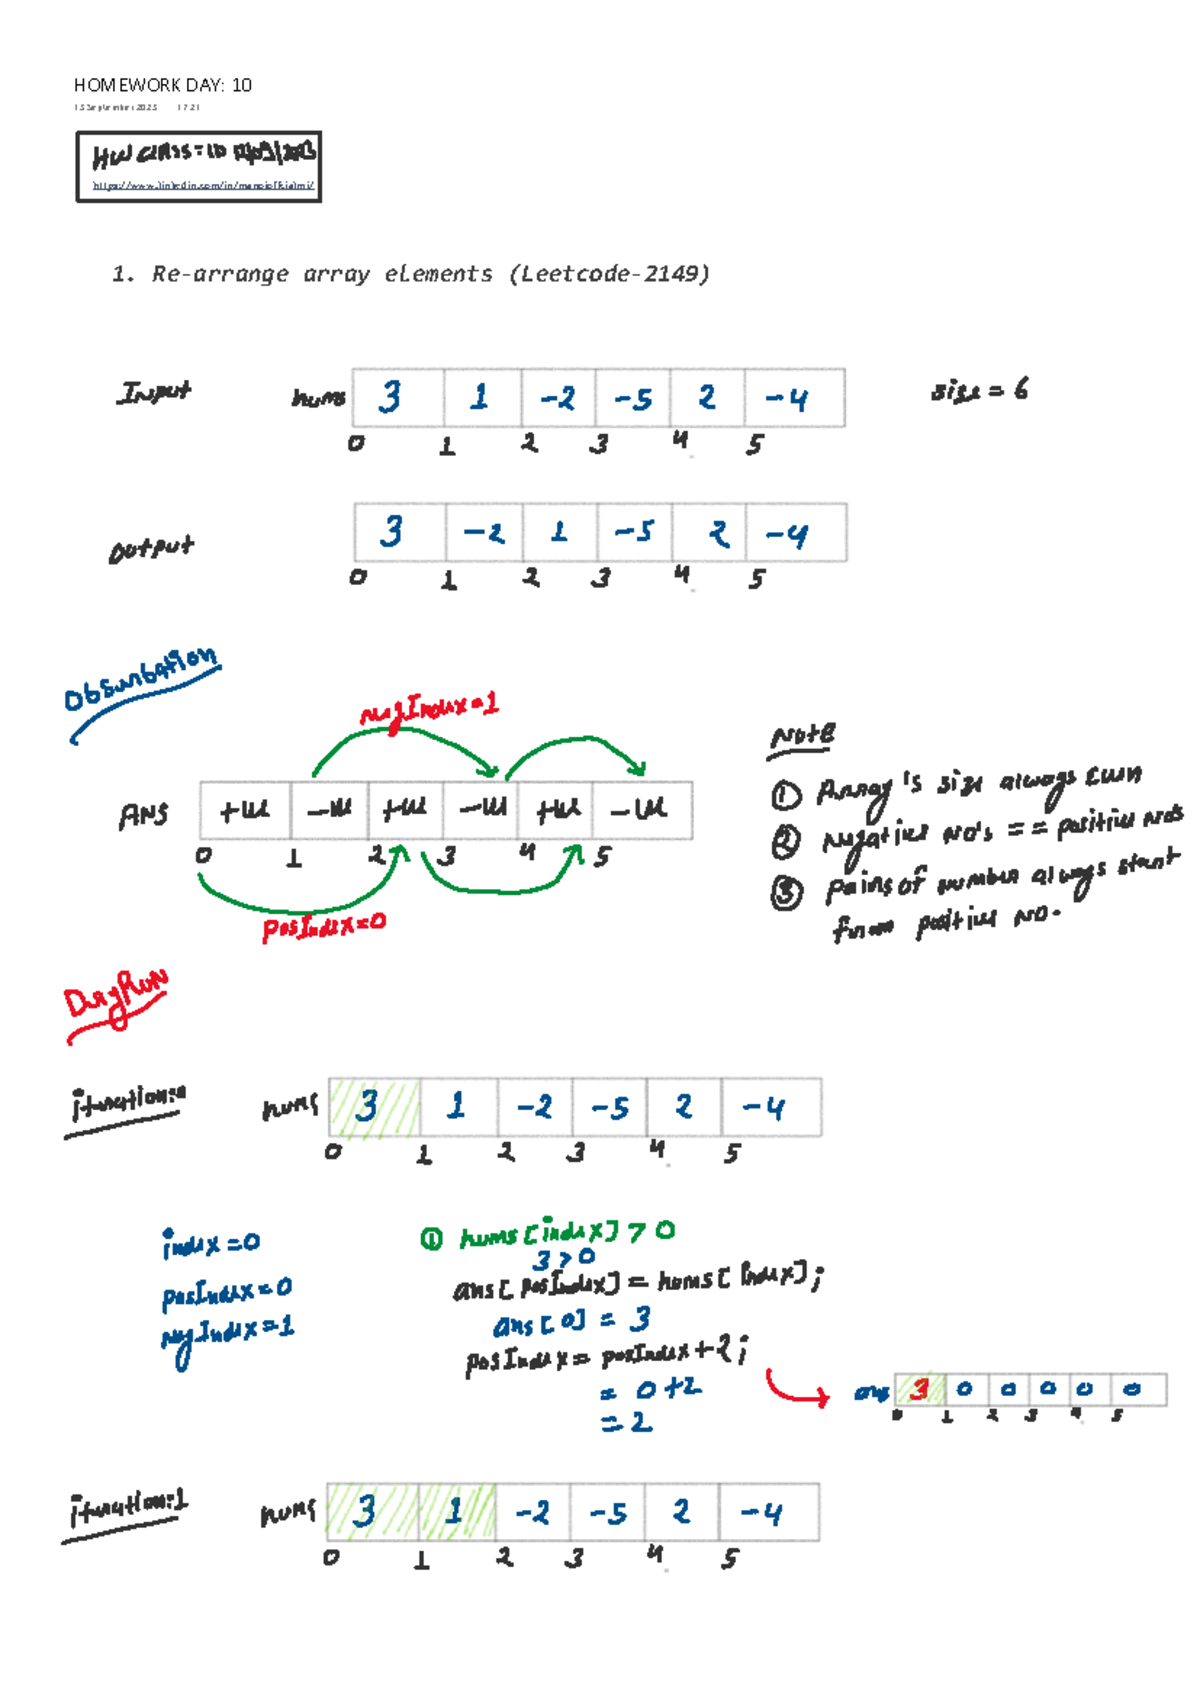 HOMEWORK DAY: 10
15 September 2023 17:21
HW CLASS=10
https://www.linkedin.com/in/manojoffcialmj/
1. Re-arrange array elements (Leetcode-2149)
Input nums 3 1 -2 -5 2 -4 size = 6
0 1 2 3 4 5
output 3 -2 1 -5 2 -4
0 1 2 3 4 5
Observation
negIndex=1
Note
ANS +ve -ve +ve -ve +ve -ve
0 1 2 3 4 5
posIndex=0
① Array's size always even
② Negative no's == positive no's
③ pairs of number always start
from positive no.
DryRun
iteration:0 nums 3 1 -2 -5 2 -4
0 1 2 3 4 5
index=0
posIndex=0
negIndex=1
① nums[index] > 0
3 > 0
ans[posIndex] = nums[index];
ans[0] = 3
posIndex = posIndex+2;
= 0+2
= 2
ans 3 0 0 0 0 0
0 1 2 3 4 5
iteration:1 nums 3 1 -2 -5 2 -4
0 1 2 3 4 5